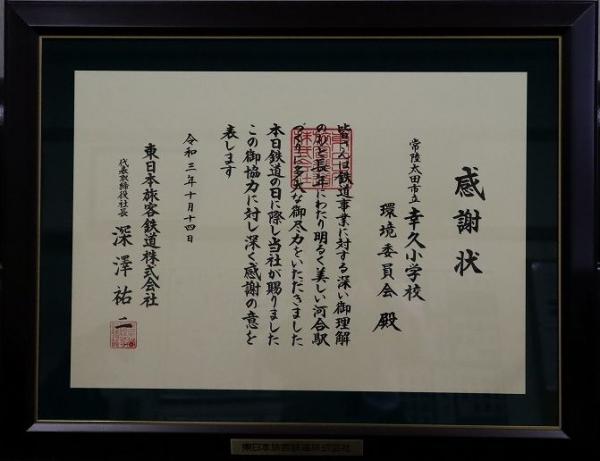 感謝状
常陸太田市立 幸久小学校
環境委員会 殿
皆さんは鉄道事業に対する深い御理解
のもと長年にわたり明るく美しい河合駅
づくりに多大な御尽力をいただきました
本日鉄道の日に際し当社が賜りました
この御協力に対し深く感謝の意を
表します
令和三年十月十四日
東日本旅客鉄道株式会社
代表取締役社長 深澤祐二
東日本旅客鉄道株式会社